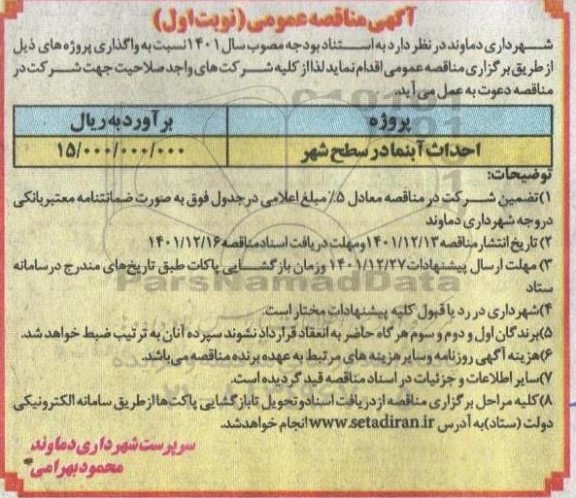 آگهی مناقصه عمومی (نوبت اول)
شهرداری دماوند در نظر دارد به استناد بودجه مصوب سال ۱۴۰۱ نسبت به واگذاری پروژه های ذیل
از طریق برگزاری مناقصه عمومی اقدام نماید لذا از کلیه شرکت های واجد صلاحیت جهت شرکت در
مناقصه دعوت به عمل می آید.
پروژه برآورد به ریال
احداث آبنما در سطح شهر ۱۵/۰۰۰/۰۰۰/۰۰۰
توضیحات:
۱) تضمین شرکت در مناقصه معادل ۵٪ مبلغ اعلامی در جدول فوق به صورت ضمانتنامه معتبر بانکی
در وجه شهرداری دماوند
۲) تاریخ انتشار مناقصه ۱۴۰۱/۱۲/۱۳ و مهلت دریافت اسناد مناقصه ۱۴۰۱/۱۲/۱۶
۳) مهلت ارسال پیشنهادات ۱۴۰۱/۱۲/۲۷ و زمان بازگشایی پاکات طبق تاریخ های مندرج در سامانه
ستاد
۴) شهرداری در رد یا قبول کلیه پیشنهادات مختار است.
۵) برندگان اول و دوم و سوم هرگاه حاضر به انعقاد قرارداد نشوند سپرده آنان به ترتیب ضبط خواهد شد.
۶) هزینه آگهی روزنامه و سایر هزینه های مرتبط به عهده برنده مناقصه می باشد.
۷) سایر اطلاعات و جزئیات در اسناد مناقصه قید گردیده است.
۸) کلیه مراحل برگزاری مناقصه از دریافت اسناد و تحویل تا بازگشایی پاکت ها از طریق سامانه الکترونیکی
دولت (ستاد) به آدرس www.setadiran.ir انجام خواهد شد.
سرپرست شهرداری دماوند
محمود بهرامی
ParsNamadData